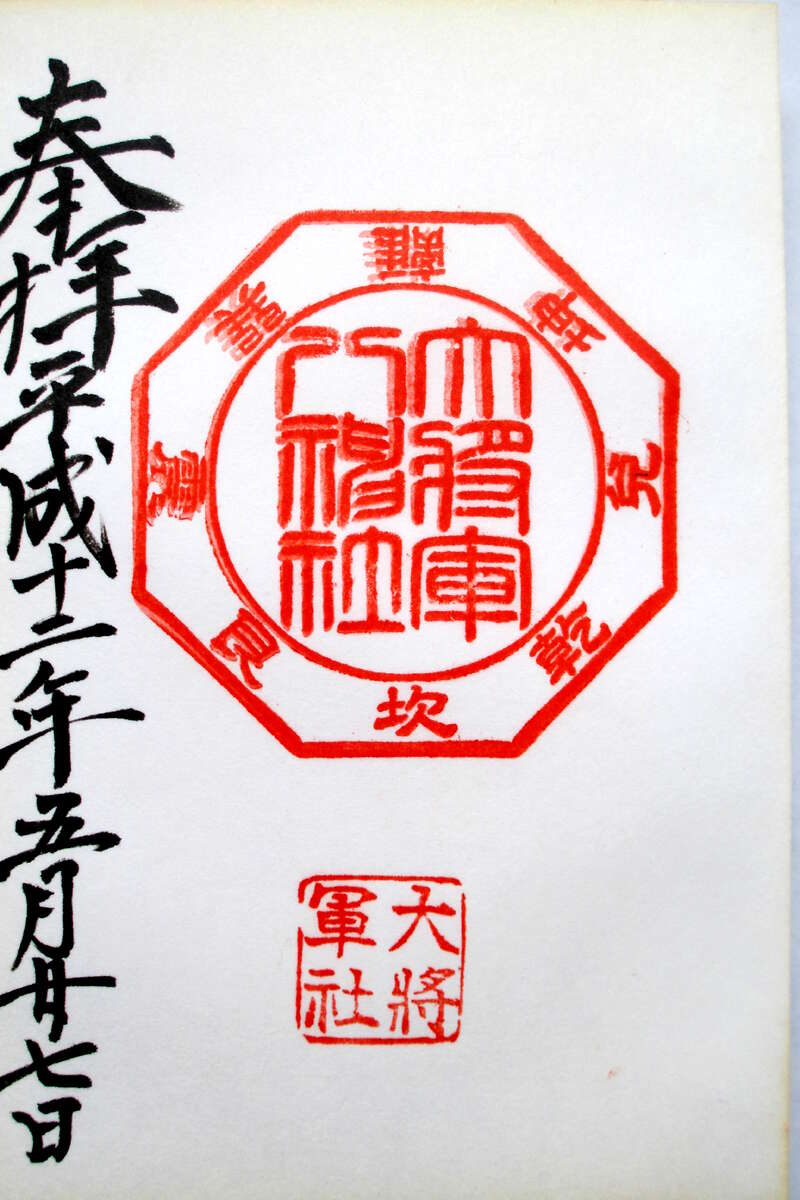 奉拝
平成十二年五月廿七日
大将軍
八神社
離
坤
兌
乾
坎
艮
震
巽
大將
軍社